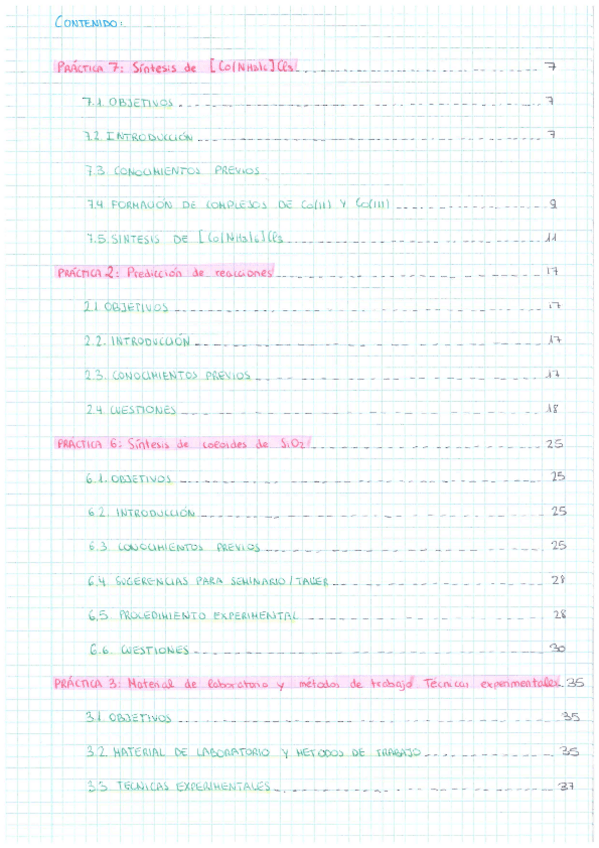 CONTENIDO:
PRÁCTICA 7: Síntesis de [Co(NH3)6]Cl3 7
7.1. OBJETIVOS 7
7.2. INTRODUCCIÓN 7
7.3. CONOCIMIENTOS PREVIOS
7.4. FORMACIÓN DE COMPLEJOS DE Co(II) Y Co(III) 9
7.5. SÍNTESIS DE [Co(NH3)6]Cl3 11
PRÁCTICA 2: Predicción de reacciones 17
2.1. OBJETIVOS 17
2.2. INTRODUCCIÓN 17
2.3. CONOCIMIENTOS PREVIOS 17
2.4. CUESTIONES 18
PRÁCTICA 6: Síntesis de coloides de SiO2 25
6.1. OBJETIVOS 25
6.2. INTRODUCCIÓN 25
6.3. CONOCIMIENTOS PREVIOS 25
6.4. SUGERENCIAS PARA SEMINARIO/TALLER 28
6.5. PROCEDIMIENTO EXPERIMENTAL 28
6.6. CUESTIONES 30
PRÁCTICA 3: Material de laboratorio y métodos de trabajo. Técnicas experimentales 35
3.1. OBJETIVOS 35
3.2. MATERIAL DE LABORATORIO Y METODOS DE TRABAJO 35
3.3. TECNICAS EXPERIMENTALES 37